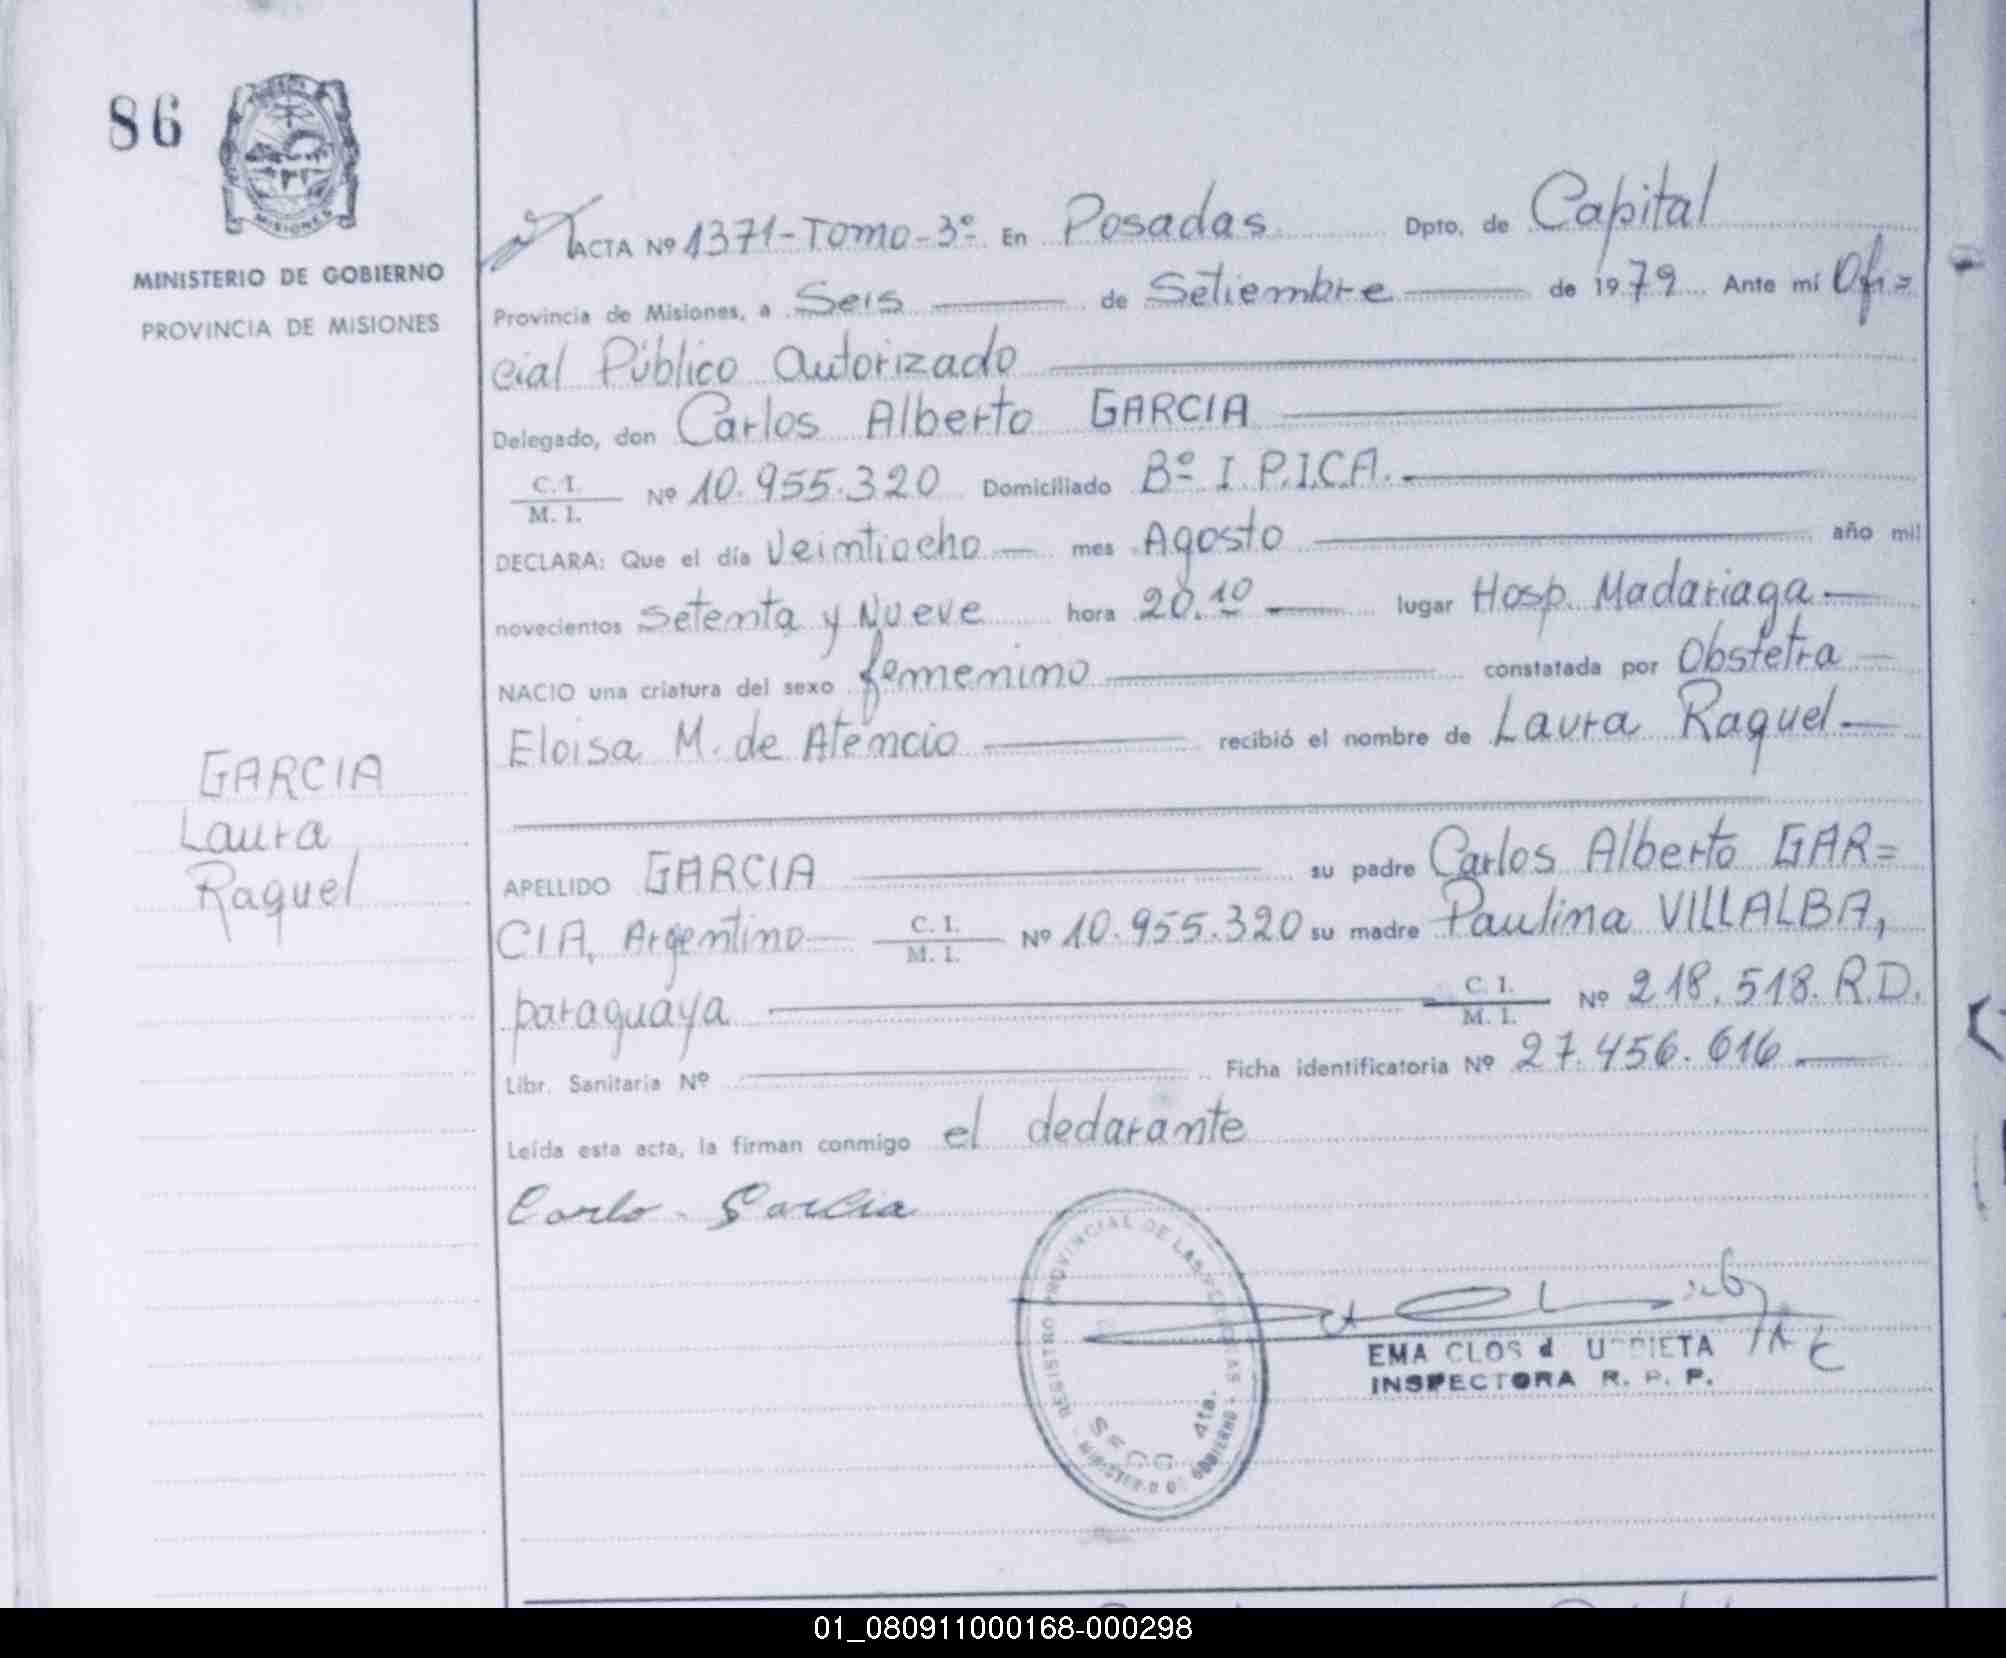 86
MISIONES
MINISTERIO DE GOBIERNO
PROVINCIA DE MISIONES
GARCIA
Laura
Raquel
ACTA Nº 1371-Tomo-3º En Posadas Dpto. de Capital
Provincia de Misiones, a Seis de Setiembre de 1979 Ante mí Ofi=
cial Público Autorizado
Delegado, don Carlos Alberto GARCIA
C. I.
M. I.
Nº 10.955.320 Domiciliado Bº I.P.I.C.A.
DECLARA: Que el día Veintiocho mes Agosto año mil
novecientos Setenta y Nueve hora 20.10 lugar Hosp. Madariaga
NACIO una criatura del sexo femenino constatada por Obstetra
Eloisa M. de Atencio recibió el nombre de Laura Raquel
APELLIDO GARCIA su padre Carlos Alberto GAR=
CIA, Argentino C. I. M. I. Nº 10.955.320 su madre Paulina VILLALBA,
paraguaya C. I. M. I. Nº 218.518. R.D.
Libr. Sanitaria Nº Ficha identificatoria Nº 27.456.616
Leída esta acta, la firman conmigo el declarante
Carlo Garcia
REGISTRO PROVINCIAL DE LAS PERSONAS
SECC 4ta.
MINISTERIO DE GOBIERNO
EMA CLOS d
INSPECTORA R. P. P.
01_080911000168-000298